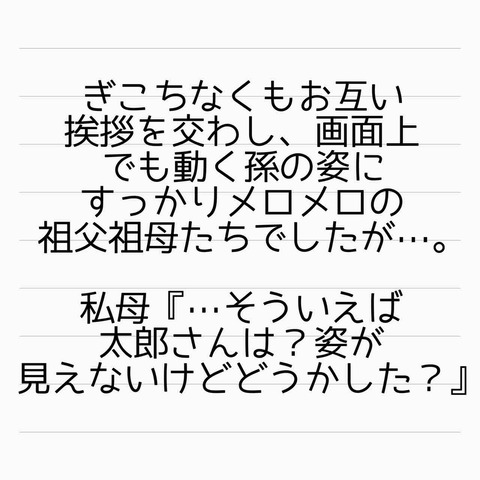 ぎこちなくもお互い
挨拶を交わし、画面上
でも動く孫の姿に
すっかりメロメロの
祖父祖母たちでしたが…。
私母『…そういえば
太郎さんは？姿が
見えないけどどうかした？』